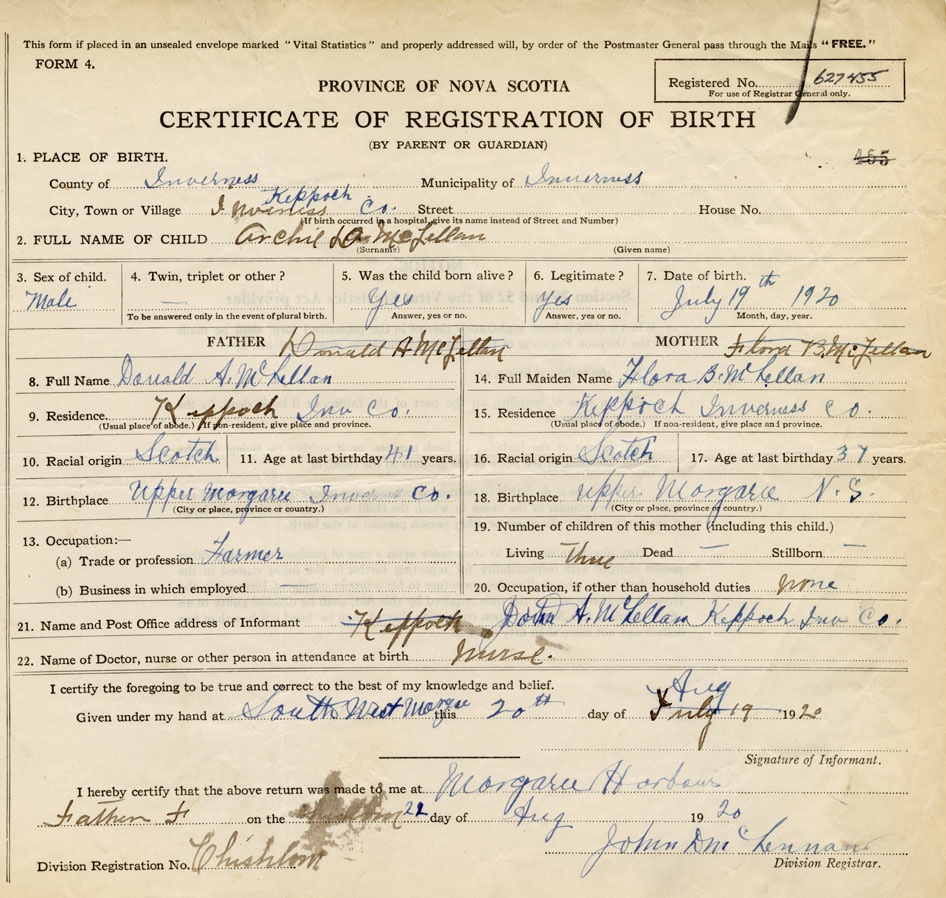 This form if placed in an unsealed envelope marked "Vital Statistics" and properly addressed will, by order of the Postmaster General pass through the Mails "FREE."
FORM 4.
Registered No. 627455
For use of Registrar General only.
PROVINCE OF NOVA SCOTIA
CERTIFICATE OF REGISTRATION OF BIRTH
(BY PARENT OR GUARDIAN)
455
1. PLACE OF BIRTH.
County of Inverness Municipality of Inverness
Keppoch
City, Town or Village Inverness Co. Street House No.
(If birth occurred in a hospital, give its name instead of Street and Number)
2. FULL NAME OF CHILD Archie McLellan
(Surname) (Given name)
3. Sex of child. 4. Twin, triplet or other? 5. Was the child born alive? 6. Legitimate? 7. Date of birth.
Male — Yes Yes July 19th 1920
To be answered only in the event of plural birth. Answer, yes or no. Answer, yes or no. Month, day, year.
FATHER Donald A McLellan MOTHER Flora B. McLellan
8. Full Name Donald A. McLellan 14. Full Maiden Name Flora B. McLellan
9. Residence. Keppoch Inv Co. 15. Residence Keppoch Inverness Co.
(Usual place of abode.) If non-resident, give place and province. (Usual place of abode.) If non-resident, give place and province.
10. Racial origin Scotch 11. Age at last birthday 41 years. 16. Racial origin Scotch 17. Age at last birthday 37 years.
12. Birthplace Upper Margaree Inverness Co. 18. Birthplace Upper Margaree N. S.
(City or place, province or country.) (City or place, province or country.)
19. Number of children of this mother (including this child.)
13. Occupation:—
(a) Trade or profession Farmer Living three Dead — Stillborn —
(b) Business in which employed — 20. Occupation, if other than household duties none
21. Name and Post Office address of Informant Keppoch A. McLellan Keppoch Inv Co.
22. Name of Doctor, nurse or other person in attendance at birth nurse.
I certify the foregoing to be true and correct to the best of my knowledge and belief.
Aug
Given under my hand at South West Margaree this 20th day of July 19 1920
Signature of Informant.
I hereby certify that the above return was made to me at Margaree Harbour
Father F on the 22 day of Aug 1920
John D McLennan
Division Registration No. Chisholm Division Registrar.